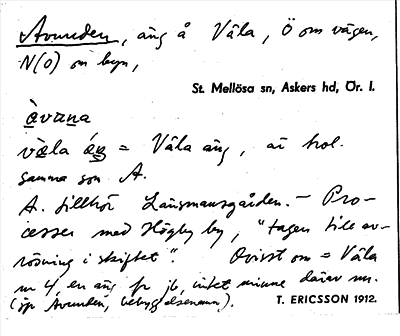 Avunden, äng å Våla, Ö om vägen,
N(O) om byn,
St. Mellösa sn, Askers hd, Ör. l.
àvṵna
våla áŋ = Våla äng, är
samma som A.
A. tillhör Länsmansgården. — Pro-
cesser med Högby by, "tagen till av-
rösning i skiftet". Ovisst om = Våla
nr 4, en äng fr jb, intet minne därav nu.
(jfr Avunden, bebyggelsenamn). T. ERICSSON 1912.